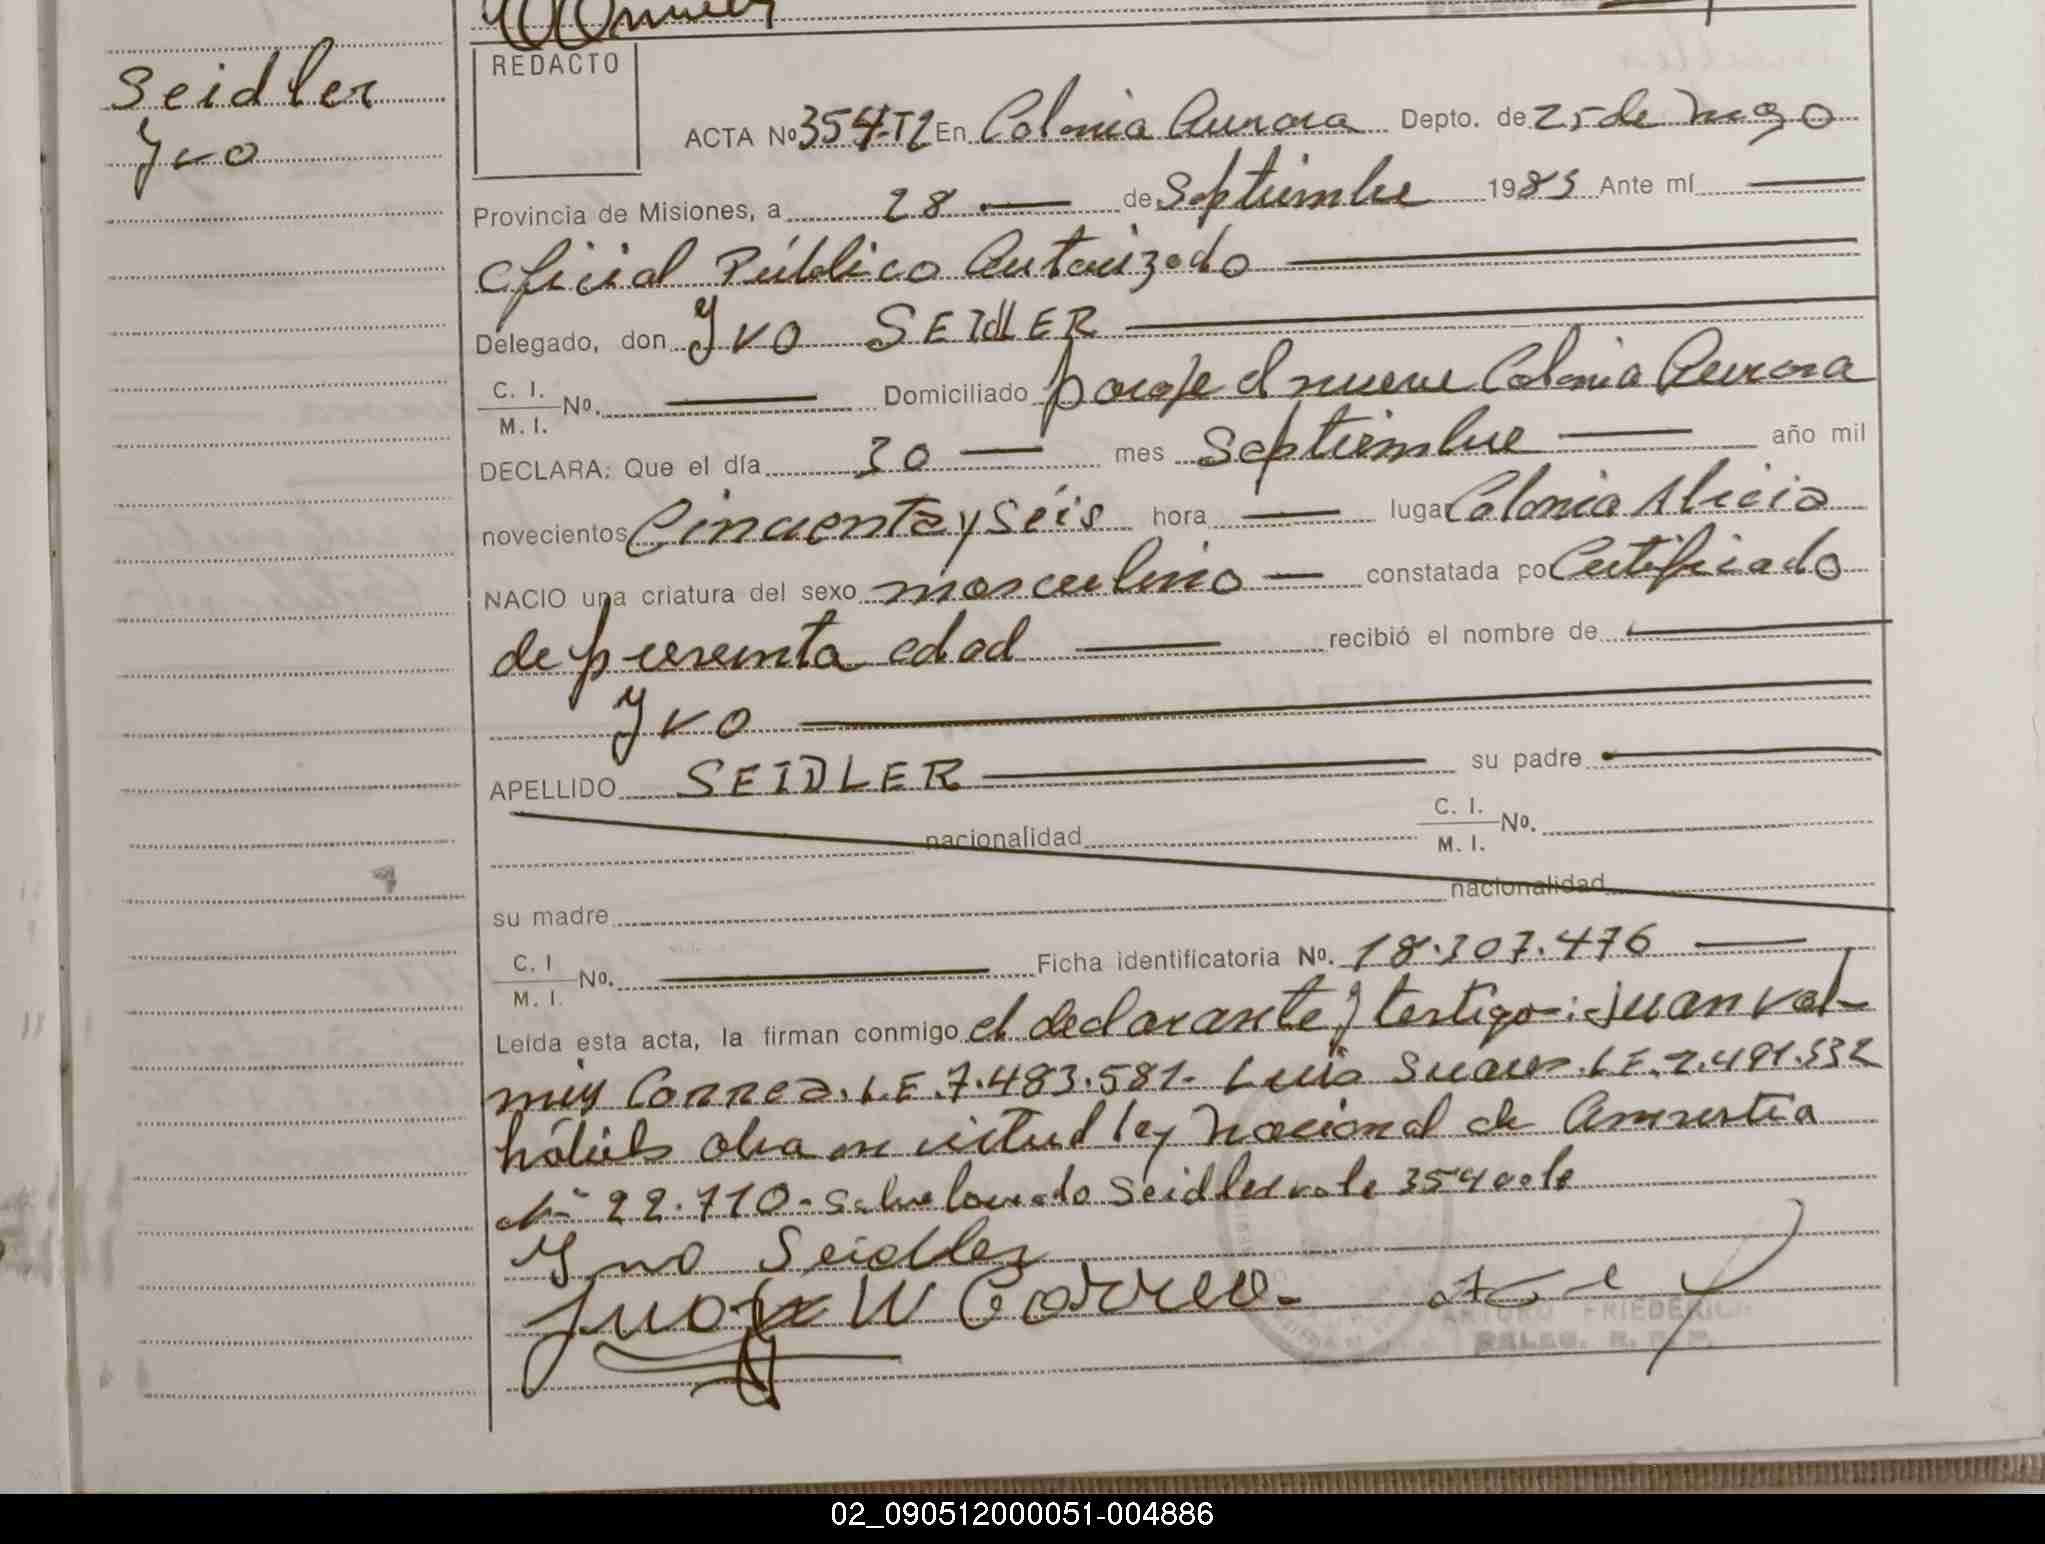 Seidler
Yvo
REDACTO
ACTA Nº 354-T2 En Colonia Aurora Depto. de 25 de Mayo
Provincia de Misiones, a 28 de Septiembre 1985 Ante mí
Oficial Público Autorizado
Delegado, don Yvo SEIdLER
C. I. M. I. Nº. Domiciliado paraje el nueve Colonia Aurora
DECLARA: Que el día 30 mes Septiembre año mil
novecientos Cincuenta y Séis hora lugar Colonia Alicia
NACIO una criatura del sexo masculino constatada por Certificado
de presunta edad recibió el nombre de
Yvo
APELLIDO SEIDLER su padre
nacionalidad C. I. M. I. Nº.
su madre nacionalidad
C. I M. I. Nº. Ficha identificatoria Nº. 18.307.476
Leída esta acta, la firman conmigo el declarante y testigo: Juan Val-
miy Correa. L.E. 7.483.581- Luis Suares. L.E. 7.491.532
hábiles obra en virtud ley Nacional de Amnistia
Nº 22.710- Sobre borrado Seidler vale 354 vale
Yvo Seidler
Correa
ARTURO FRIEDERICH
DELEG. R. P. P.
02_090512000051-004886